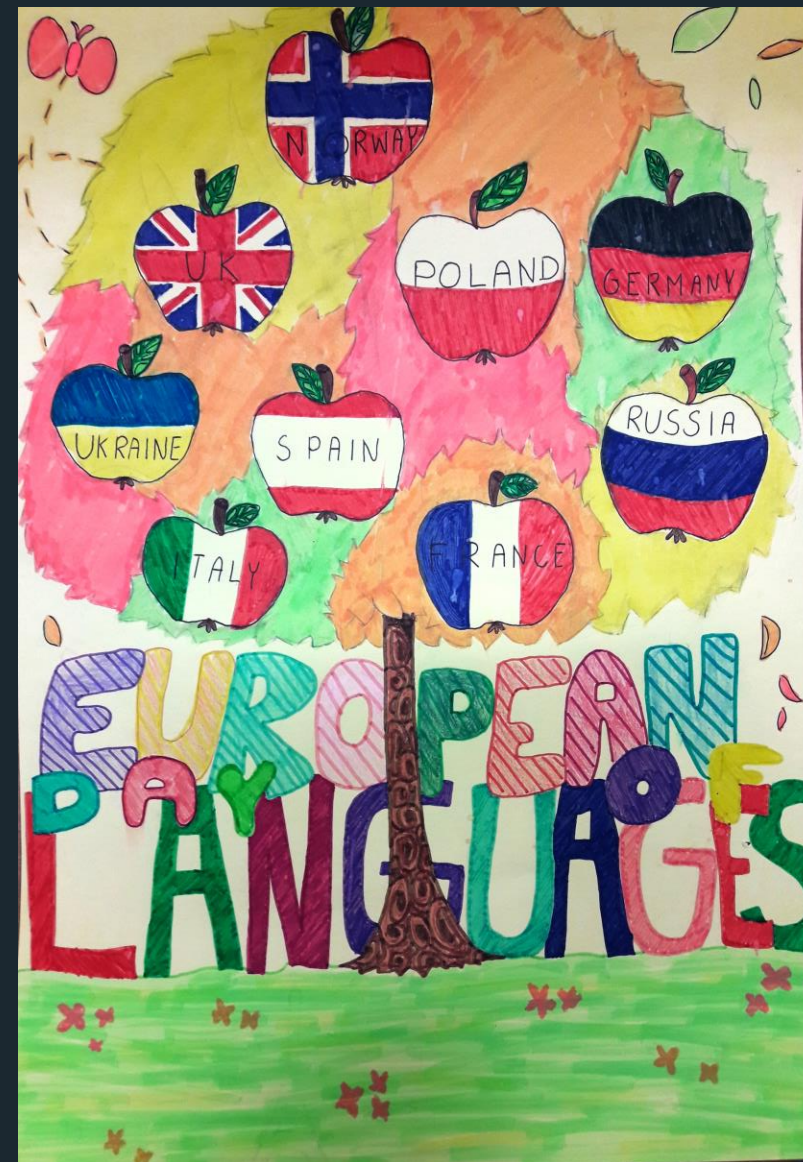 NORWAY
UK
POLAND
GERMANY
UKRAINE
SPAIN
RUSSIA
ITALY
FRANCE
EUROPEAN
DAY OF
LANGUAGES